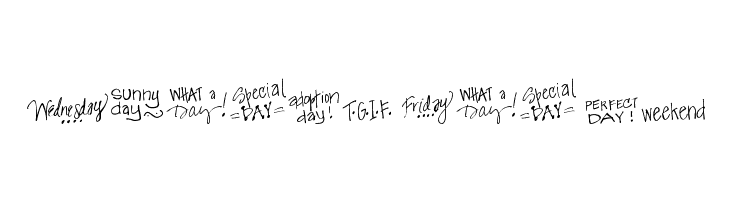 Wednesday sunny day WHAT a Day! Special =DAY= adoption day! T.G.I.F. Friday WHAT a Day! Special =DAY= PERFECT DAY! weekend